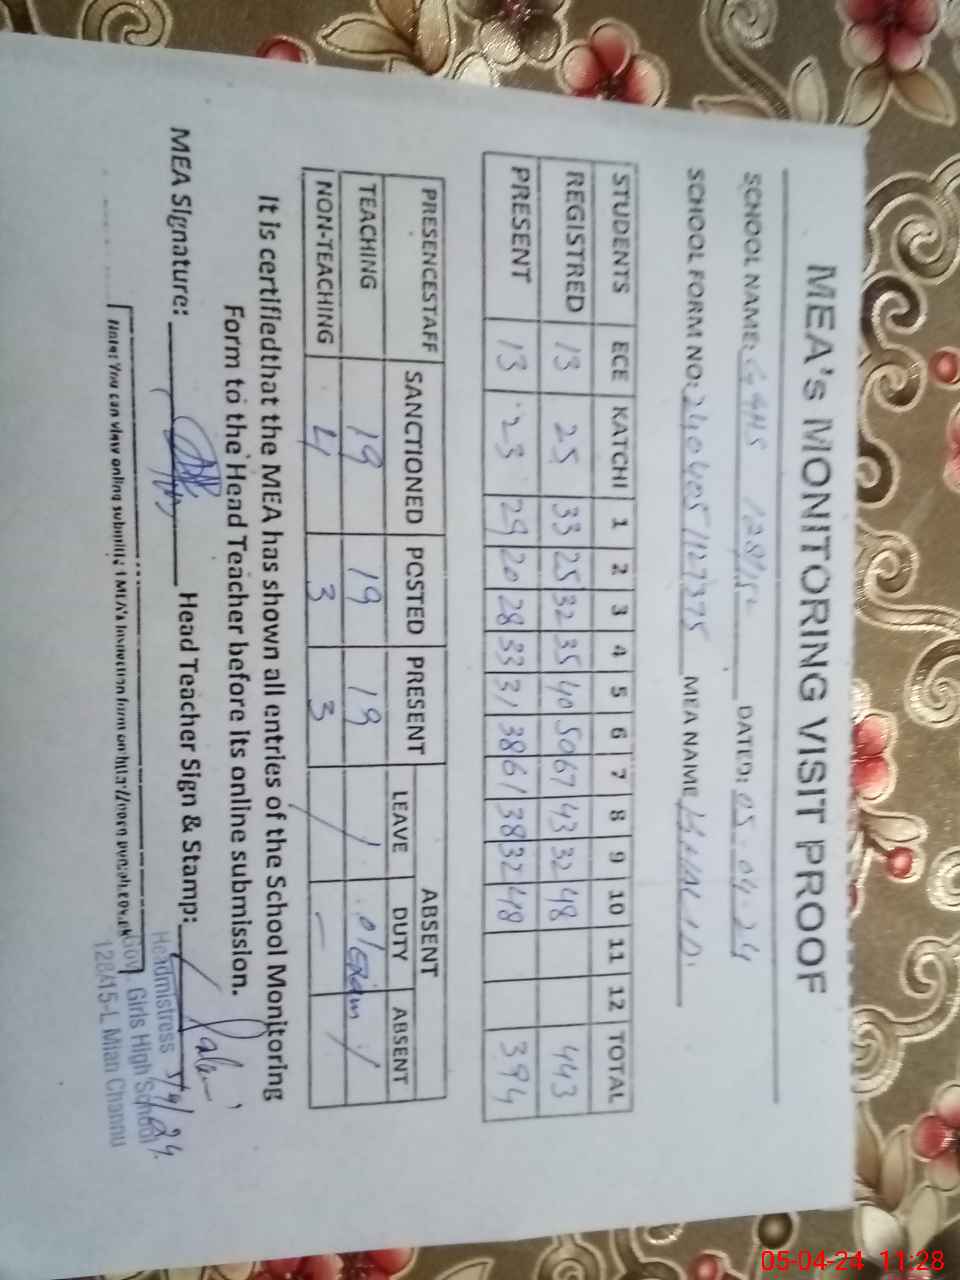 MEA's MONITORING VISIT PROOF
SCHOOL NAME: GGHS 128/15L DATED: 05-04-24
SCHOOL FORM NO: 240405/127375 MEA NAME
STUDENTS ECE KATCHI 1 2 3 4 5 6 7 8 9 10 11 12 TOTAL
REGISTRED 13 25 33 25 32 35 40 50 67 43 32 48 443
PRESENT 13 23 29 20 28 33 31 38 61 38 32 48 394
PRESENCESTAFF SANCTIONED POSTED PRESENT ABSENT
LEAVE DUTY ABSENT
TEACHING 19 19 19 / 01 Exam /
NON-TEACHING 4 3 3 / –
It is certifiedthat the MEA has shown all entries of the School Monitoring
Form to the Head Teacher before its online submission.
MEA Signature: Head Teacher Sign & Stamp:
5/4/24.
Headmistress
Gov. Girls High School
128/15-L Mian Channu
Note: You can view online submitted MEA's Inspection form on
05-04-24 11:28